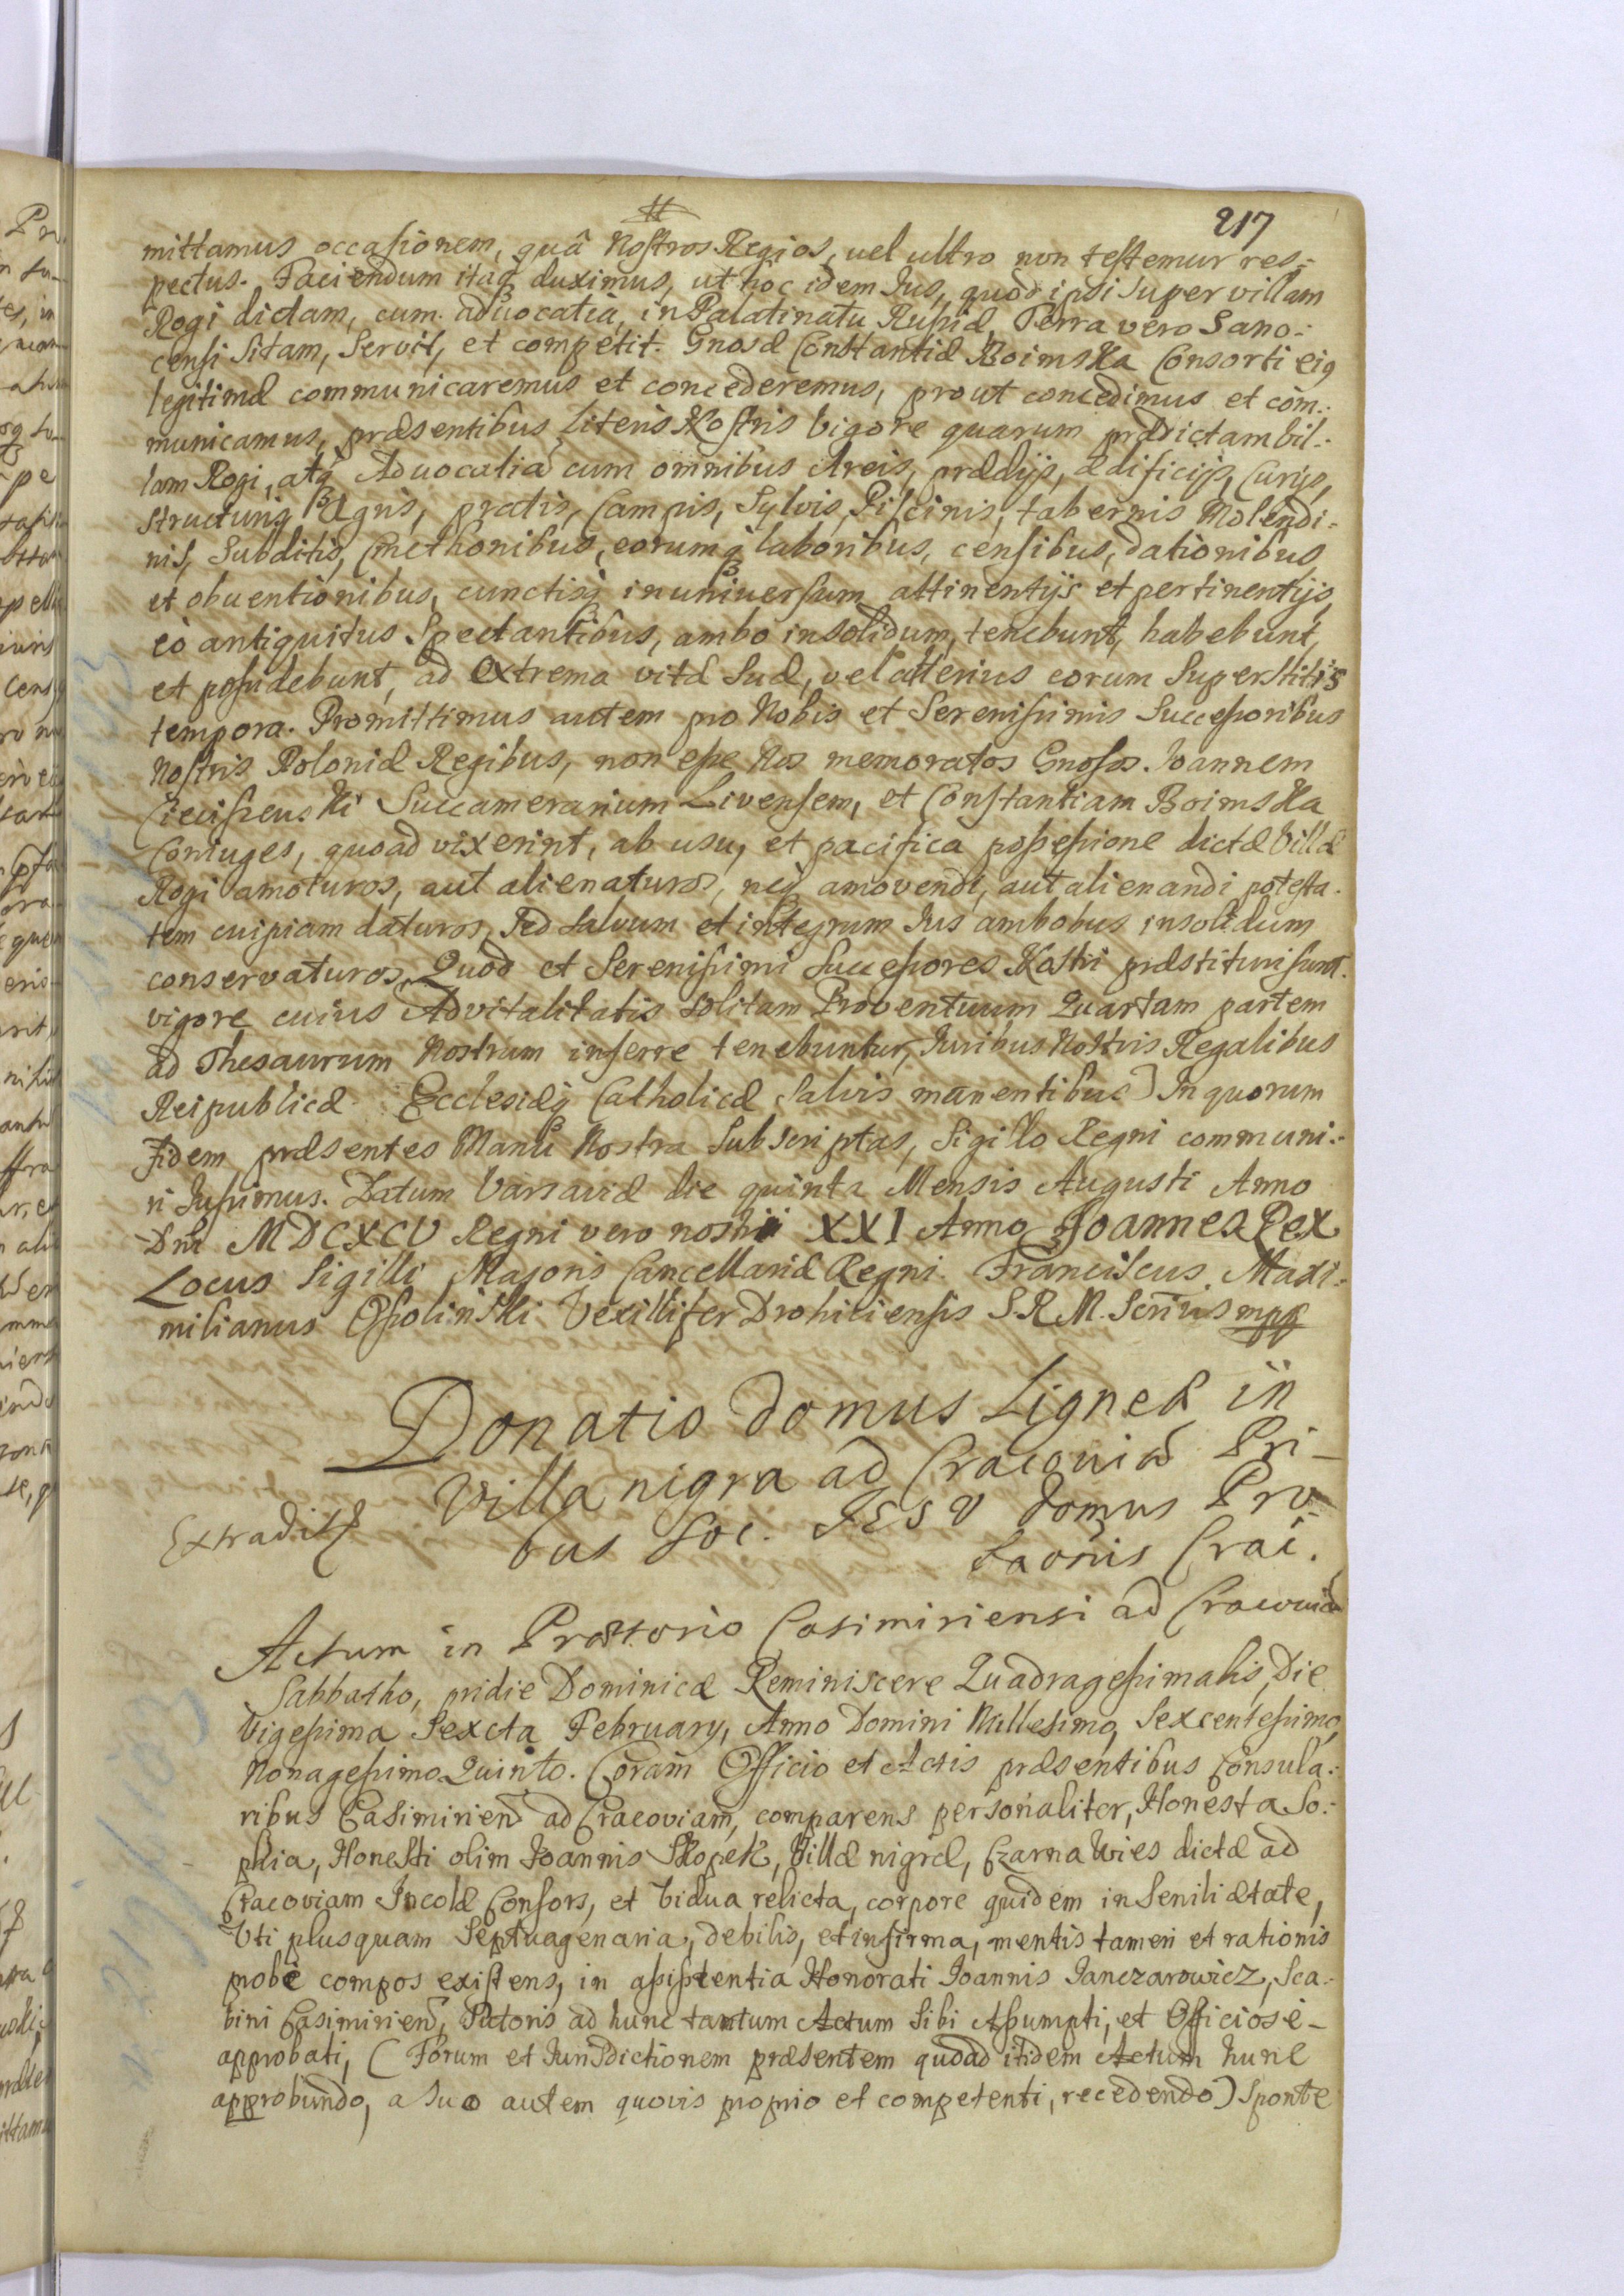 217
mittamus occasionem, quâ Nostros Regios, uel ultro non testemur res-:
pectus. Faciendum itaq duximus, ut hoc idem Jus, quòd ipsi super villam
Rogi dictam, cum aduocatia, in Palatinatu Russiæ, Terra vero Sano-:
censi sitam, servit, et competit. Gnosæ Constantiæ Boimska Consorti eig
legitimæ communicaremus et concederemus, prout concedimus et com-:
municamus, præsentibus Literis Nostris vigore quarum prædictam vil-:
lam Rogi, atq Aduocatiã cum omnibus Areis, prædijs, ædificijs, Curijs,
structurisq Agris, pratis, Campis, Sylvis, Piscinis, tabernis Molendi-
nis, Subditis, Cmethonibus, eorumq laboribus, censibus, dationibus,
et obuentionibus, cunctisq in universum attinentijs et pertinentijs,
eò antiquitus Spectantibus, ambo insolidum, tenebunt, habebunt,
et possidebunt, ad extrema vitæ suæ, vel alterius eorum Superstitis
tempora. Promittimus autem pro Nobis et Serenissimis Successoribus
Nostris Poloniæ Regibus, non esse Nos memoratos Gnosos. Joannem
Succamerarium Livensem, et Constantiam Boimska
Coniuges, quoad vixerint, ab usu, et pacifica possessione dictæ Villæ
Rogi amoturos, aut alienaturos, neq amovendi, aut alienandi potesta-
tem cuipiam daturos, sed salvum et integrum Jus ambobus insolidum
conservaturos. Quod et Serenissimi Successores Nostri præstituri sunt.
vigore cuius Advitalitatis solitam Proventuum Quartam partem
ad Thesaurum Nostrum inferre tenebuntur, Juribus Nostris Regalibus
Reipublicæ Ecclesiæq Catholicæ salvis manentibus) In quorum
Fidem præsentes Manu Nostra Subscriptas, Sigillo Regni communi-:
ri Jussimus. Datum Varsaviæ die quinta Mensis Augusti Anno
Dni MDCXCV Regni vero nostri XXI Anno Joannes Rex
Locus Sigilli Majoris Cancellariæ Regni. Franciscus Maxi-:
milianus Ossolinski Vexillifer Drohiciensis S.R.M. Scrius mpp
Donatio Domus Ligneæ in
Villa nigra ad Cracouiã Pri-
bus Soc. JESV Domus Pro-
baõnis Crac.
Extradit
Actum in Prætorio Casimiriensi ad Cracouiã
Sabbatho, pridie Dominicæ Reminiscere Quadragesimalis, Die
Vigesima Sexta February, Anno Domini Millesimo, Sexcentesimo,
Nonagesimo Quinto. Coram Officio et Actis præsentibus Consula-:
ribus Casimirien ad Cracoviam, comparens personaliter, Honesta So-:
phia, Honesti olim Joannis Skopek, Villæ nigræ, Czarna Wies dictæ ad
Cracoviam Incolæ Consors, et Vidua relicta, corpore quidem in Senili ætate,
Vti plusquam Septuagenaria, debilis, et infirma, mentis tamen et rationis
probè compos existens, in assistentia Honorati Joannis Janczarowicz, Sca-:
bini Casimirien, Tutoris ad hunc tantum Actum Sibi Assumpti, et Officiosè-
approbati, (Forum et Jurisdictionem præsentem quoad itidem Actum hunc
approbando, a suo autem quovis proprio et competenti, recedendo) Sponte